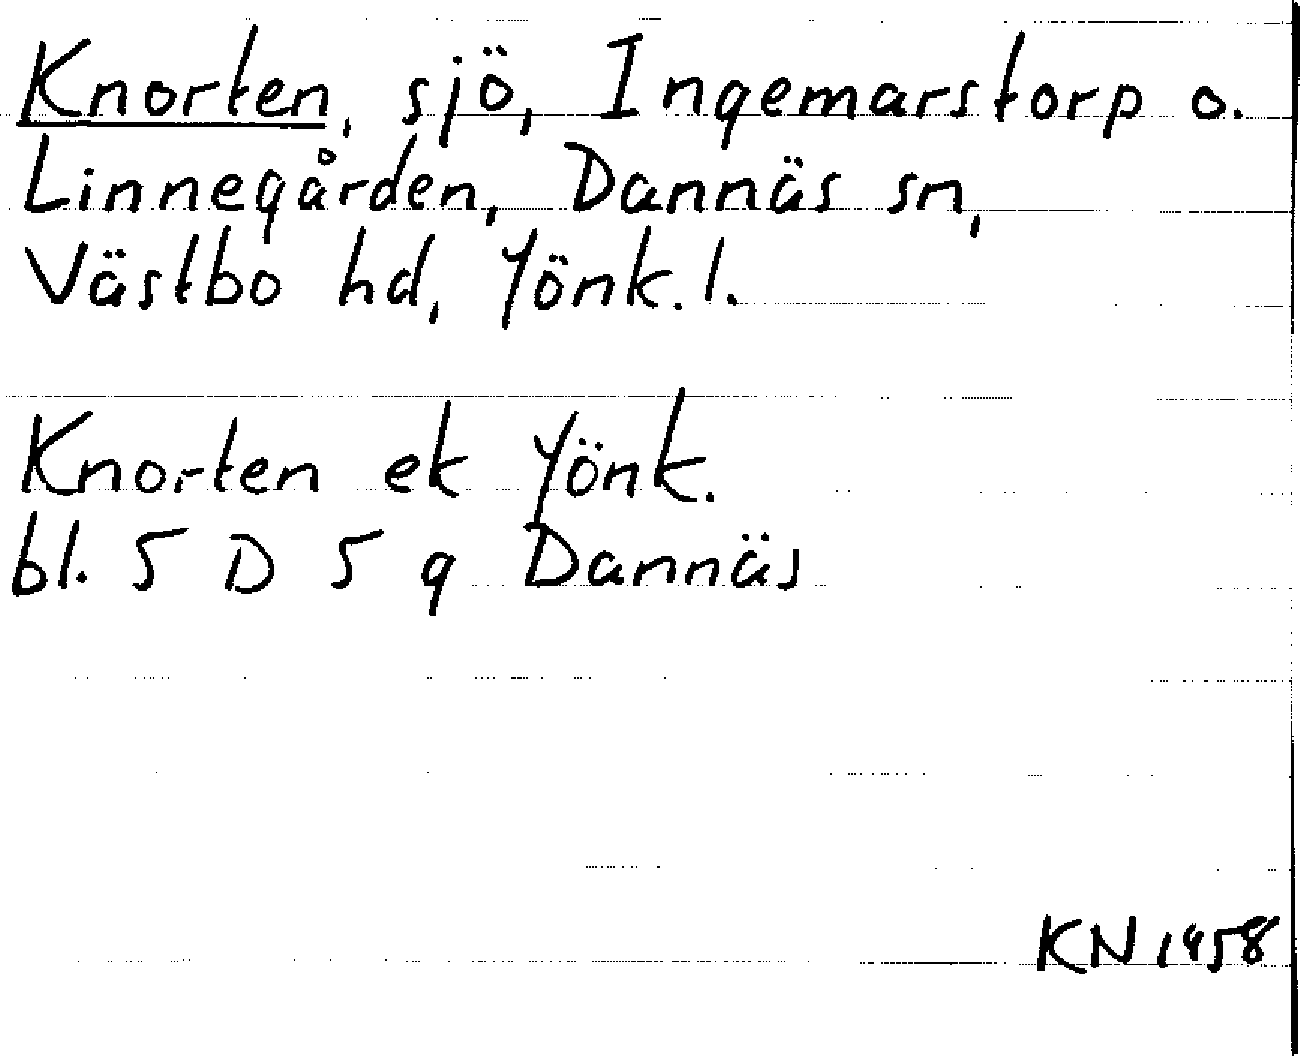 Knorten, sjö, Ingemarstorp o.
Linnegården, Dannäs sn,
Västbo hd, Jönk. l.
Knorten ek Jönk.
bl. 5 D 5 g Dannäs
KN 1958